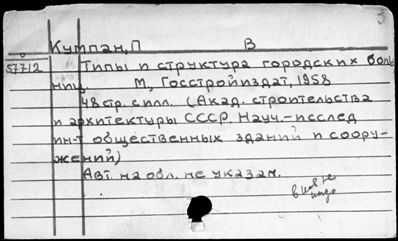 Кумпан, П В
57712 Типы и структура городских боль
ниц. М, Госстройиздат, 1958
48 стр. с илл. (Акад. строительства
и архитектуры СССР. Науч.-исслед
ин-т общественных зданий и соору-
жений)
Авт. на обл. не указан.